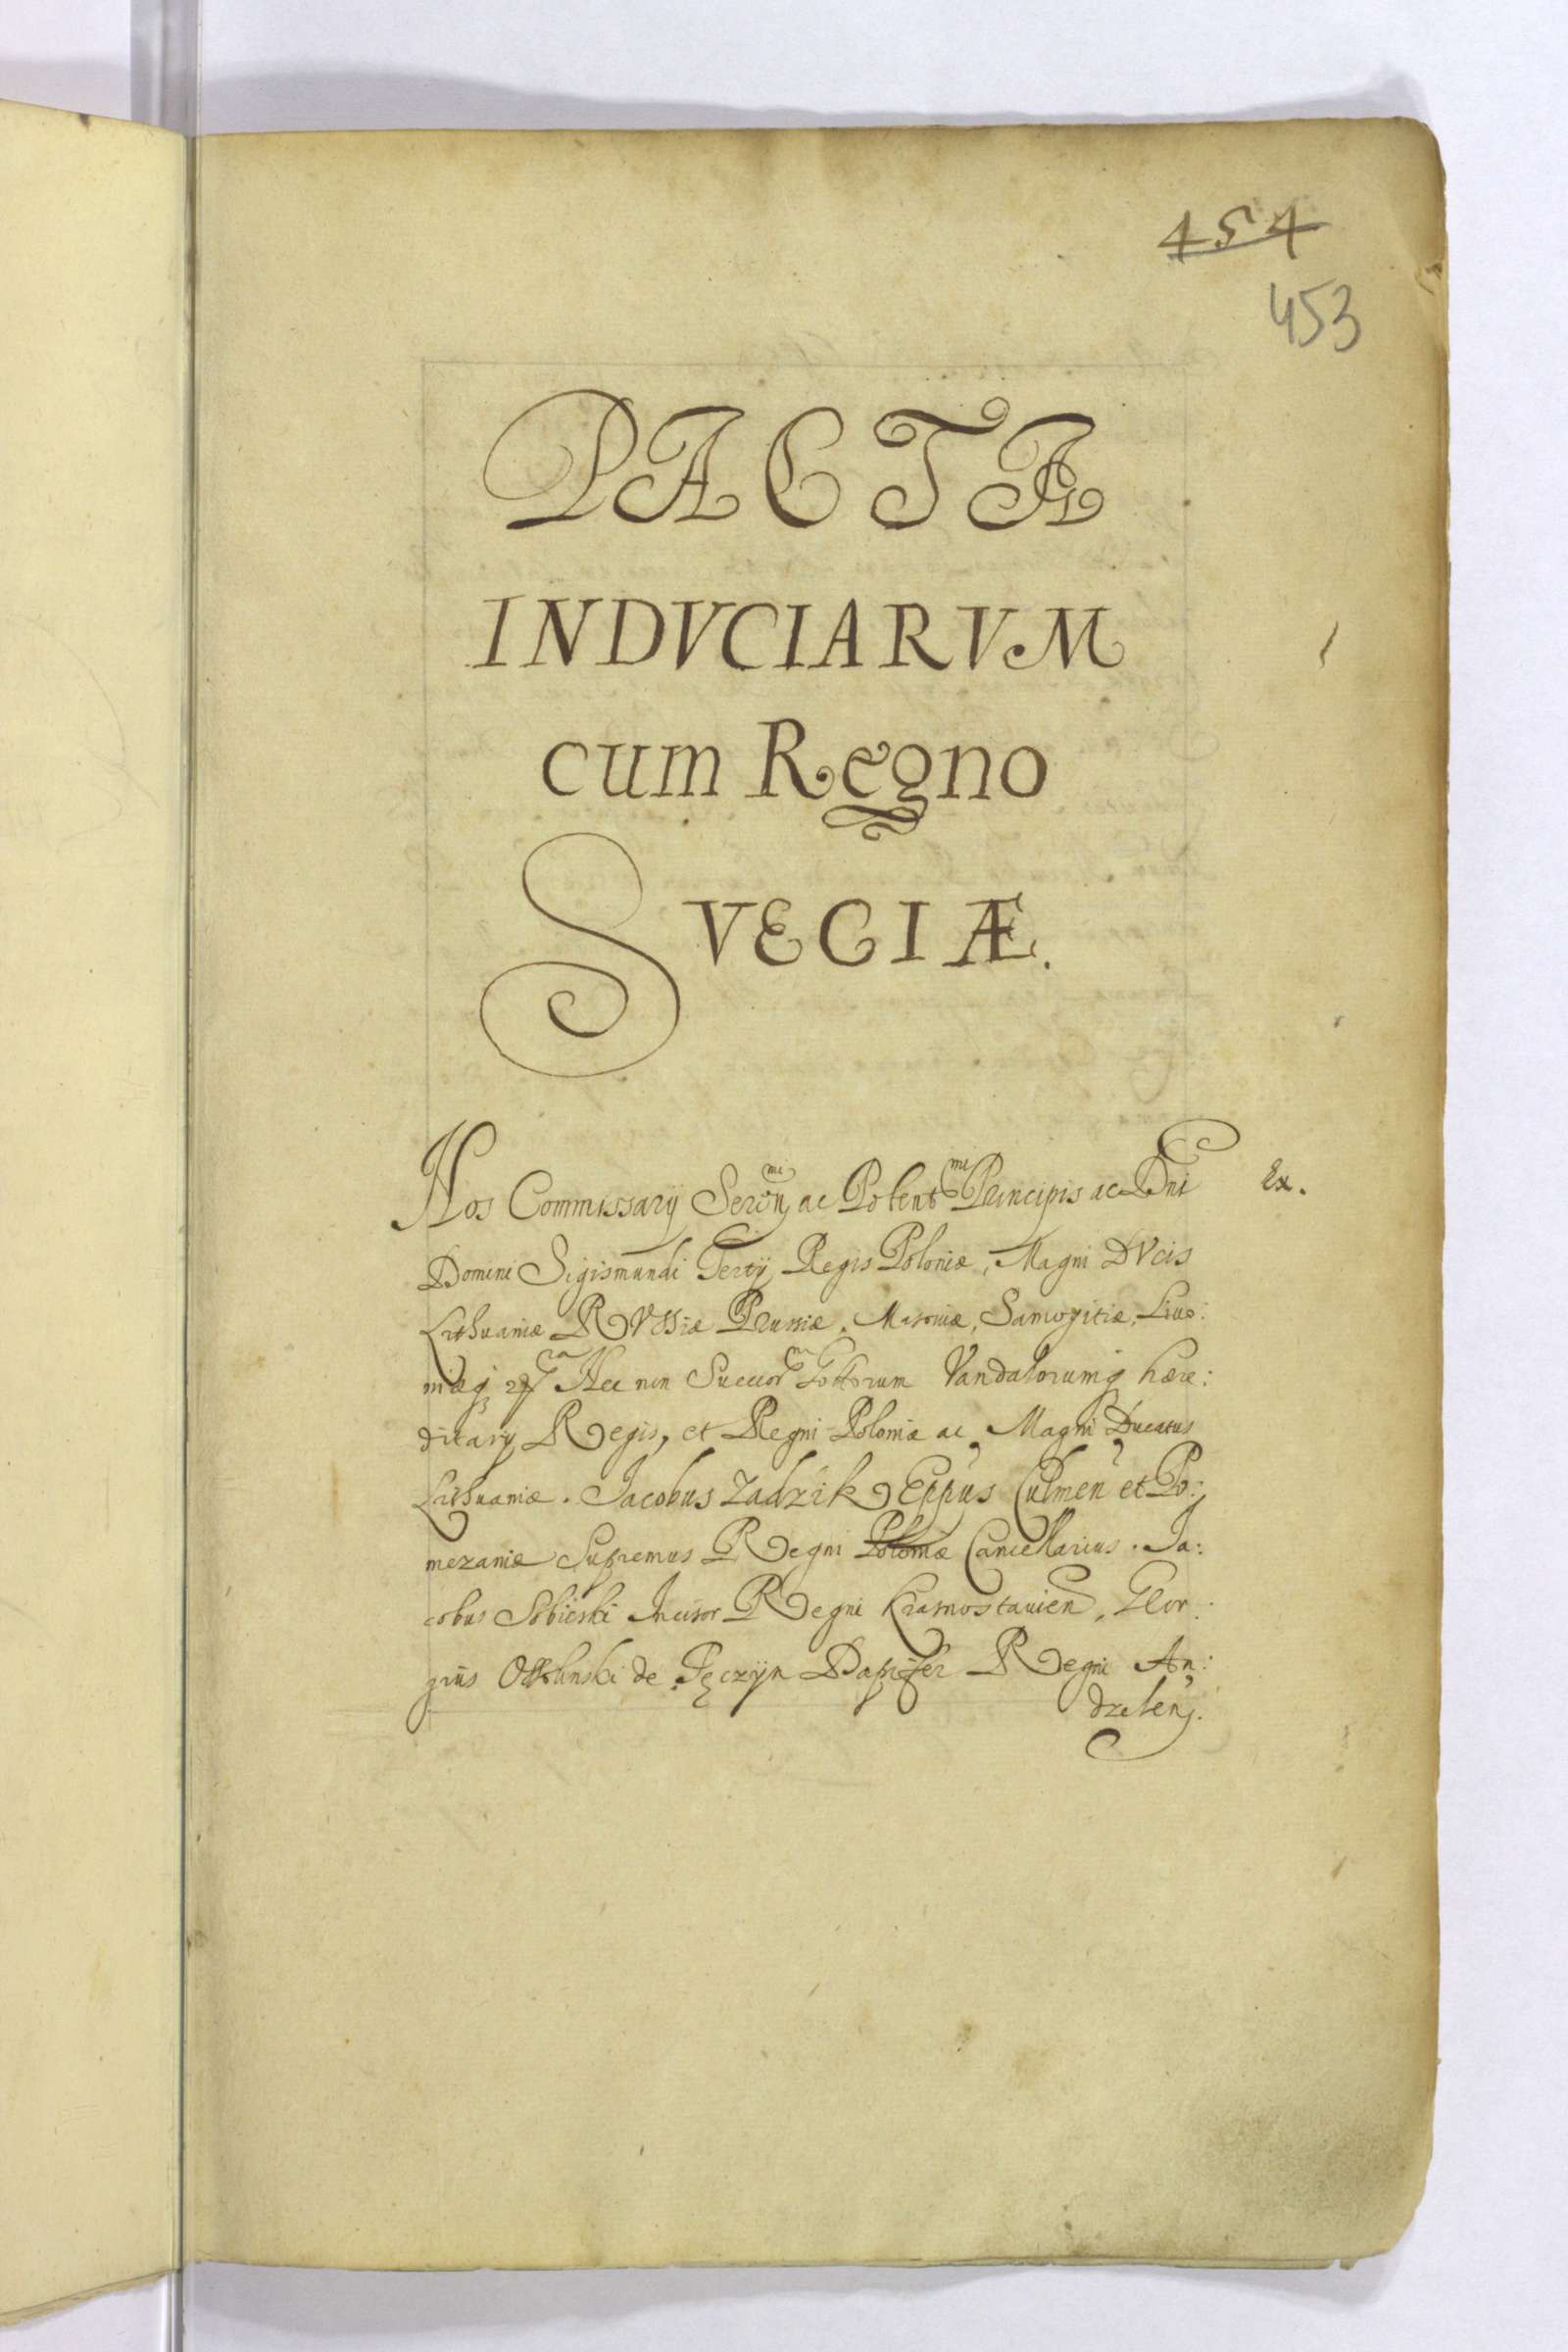 454
453
PACTA
INDVCIARVM
cum Regno
SVECIÆ.
Nos Commissarij Seren^mi ac Potent^mi Principis ac Dni
Ex.
Domini Sigismundi Tertij Regis Poloniæ, Magni DVcis
Lithuaniæ RVssiæ Prussiæ, Masouiæ, Samogitiæ, Liuo:
niæq Nec non Gottorum Vandalorumq hære:
ditarij Regis, et Regni Poloniæ ac Magni Ducatus
Lithuaniæ. Jacobus Zadzik Eppus Culmen et Po:
mezaniæ Supremus Regni Poloniæ Cancellarius. Ja:
cobus Sobieski Incisor Regni Krasnostauien, Geor:
gius Ossolinski de Tęczyn Dapifer Regni An:
dzelen.